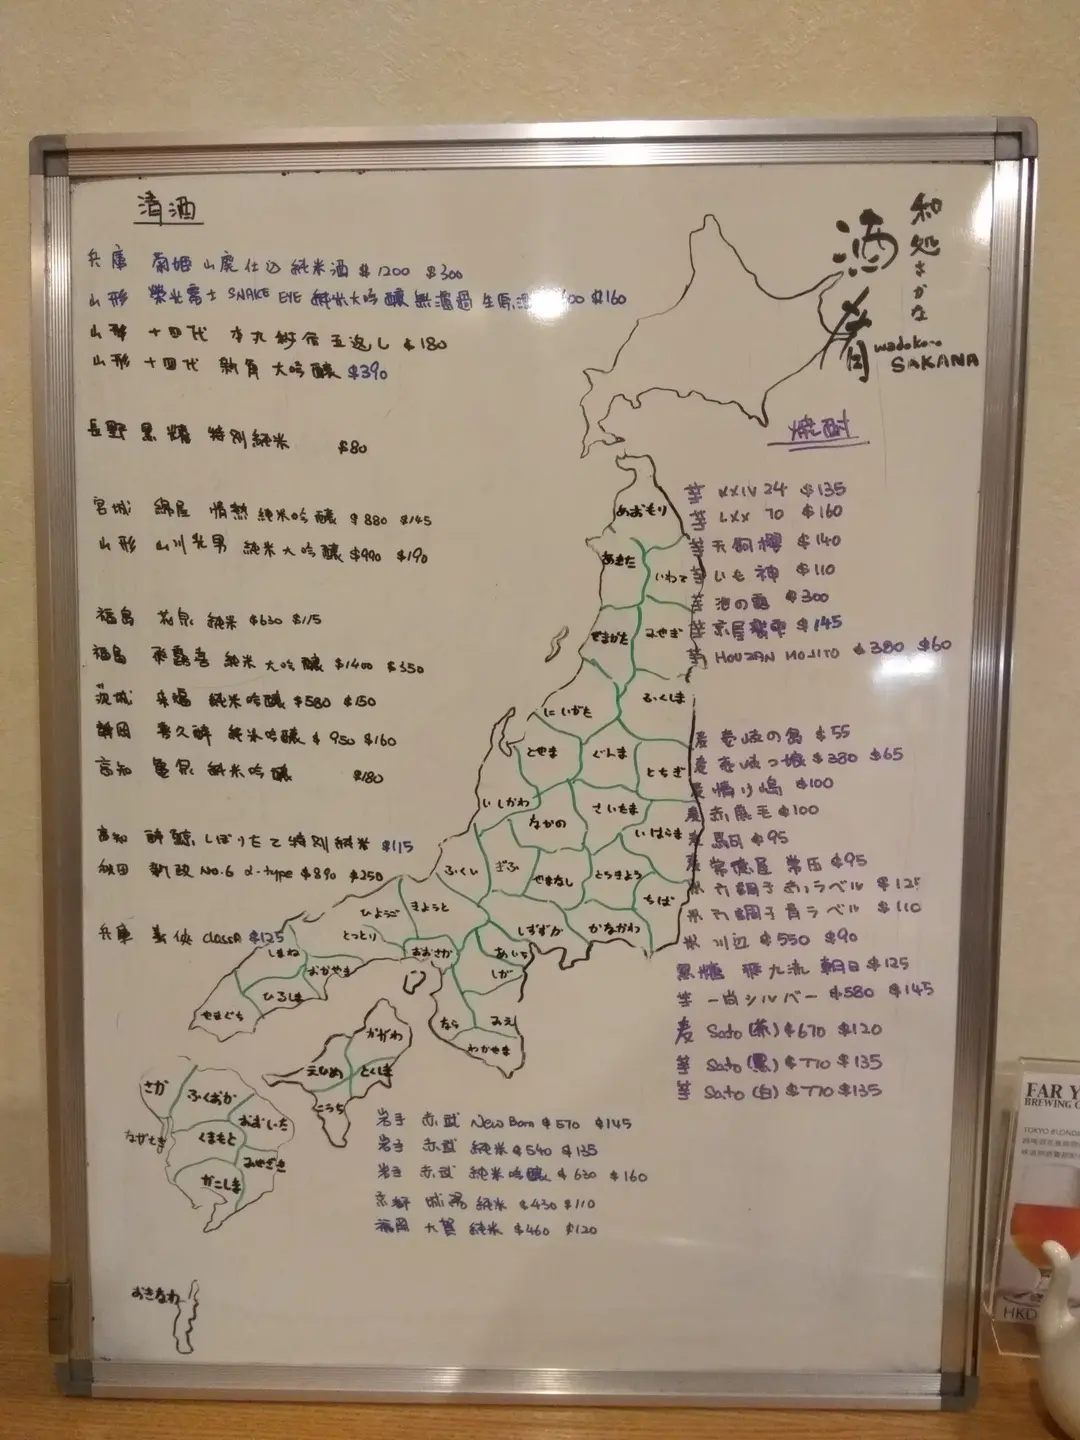 清酒
兵庫 菊姫 山廃仕込 純米酒 $1200 $300
山形 榮光富士 SNAKE EYE 純米大吟釀 無濾過 生原酒 $160
山形 十四代 本丸 $180
山形 十四代 新角 大吟釀 $390
長野 黒 特別純米 $80
宮城 綿屋 情熱 純米吟釀 $880 $145
山形 山川光男 純米大吟釀 $990 $190
福島 花泉 純米 $630 $115
福島 飛露喜 純米大吟釀 $1400 $350
茨城 来福 純米吟釀 $580 $150
静岡 喜久酔 純米吟釀 $950 $160
高知 亀泉 純米吟釀 $180
高知 酔鯨 しぼりたて 特別純米 $115
秋田 新政 No.6 α-type $890 $250
兵庫 ClassA $125
和処さかな
酒肴
wadokoro
SAKANA
焼酎
芋 KXIV 24 $135
芋 LXX 70 $160
芋 天狗櫻 $140
芋 いも神 $110
芋 池の露 $300
芋 京屋 $145
芋 HOUZAN MOJITO $380 $60
麦 壱岐の島 $55
麦 壱岐っ娘 $380 $65
麦 情り嶋 $100
麦 赤鹿毛 $100
米 鳥飼 $95
麦 常徳屋 常圧 $95
米 銀子 赤いラベル $125
米 銀子 青ラベル $110
米 川辺 $550 $90
黒糖 飛九流 朝日 $125
芋 一尚シルバー $580 $145
麦 Sato (麦) $670 $120
芋 Sato (黒) $770 $135
芋 Sato (白) $770 $135
あおもり
あきた
いわて
やまがた
みやぎ
にいがた
ふくしま
とやま
ぐんま
とちぎ
いしかわ
なかの
さいたま
いばらき
ふくい
ぎふ
やまなし
とうきょう
ちば
ひょうご
きょうと
しずおか
かながわ
とっとり
おおさか
あいち
しまね
おかやま
しが
ひろしま
やまぐち
なら
みえ
わかやま
かがわ
えひめ
とくしま
こうち
さが
ふくおか
おおいた
ながさき
くまもと
みやざき
かごしま
おきなわ
岩手 赤武 New Born $570 $145
岩手 赤武 純米 $540 $135
岩手 赤武 純米吟釀 $630 $160
京都 城陽 純米 $430 $110
福岡 大賀 純米 $460 $120
FAR Y
BREWING C
TOKYO BLONDE
HKD